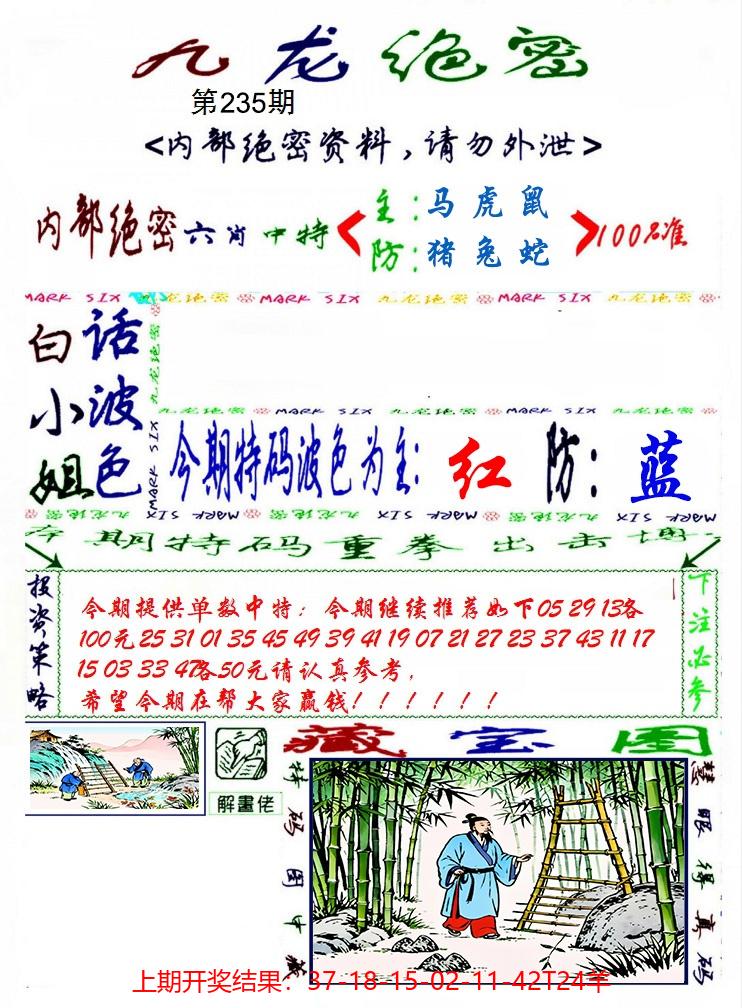 九龙绝密
第235期
<内部绝密资料,请勿外泄>
内部绝密六肖中特
主:马 虎 鼠
防:猪 兔 蛇
100%准
MARK SIX 九龙绝密 MARK SIX 九龙绝密 MARK SIX 九龙绝密
白小姐
话波色
九龙绝密 MARK SIX
九龙绝密 MARK SIX 九龙绝密 MARK SIX 九龙绝密
今期特码波色为主:红 防:蓝
九龙绝密 MARK SIX 九龙绝密 MARK SIX 九龙绝密 MARK SIX
今期特码重拳出击博
投资策略
今期提供单数中特:今期继续推荐如下05 29 13各
100元 25 31 01 35 45 49 39 41 19 07 21 27 23 37 43 11 17
15 03 33 47各50元请认真参考,
希望今期在帮大家赢钱!!!!!!
下注必参
解畫佬
藏宝图
特码图中藏
慧眼得真码
上期开奖结果:37-18-15-02-11-42T24羊